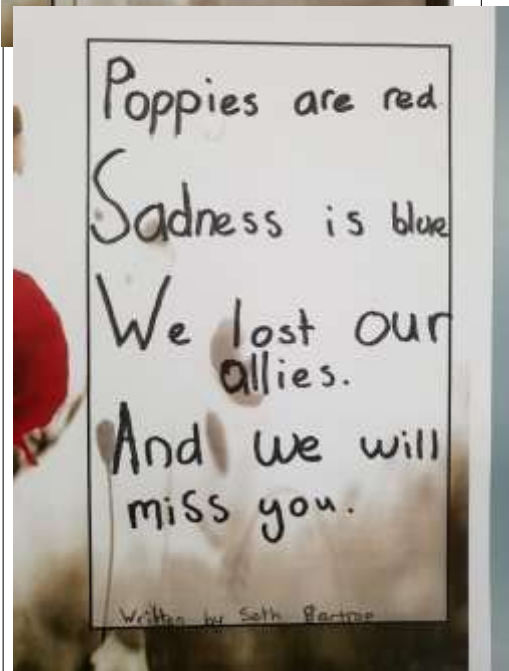 Poppies are red
Sadness is blue
We lost our
allies.
And we will
miss you.
Written by Seth